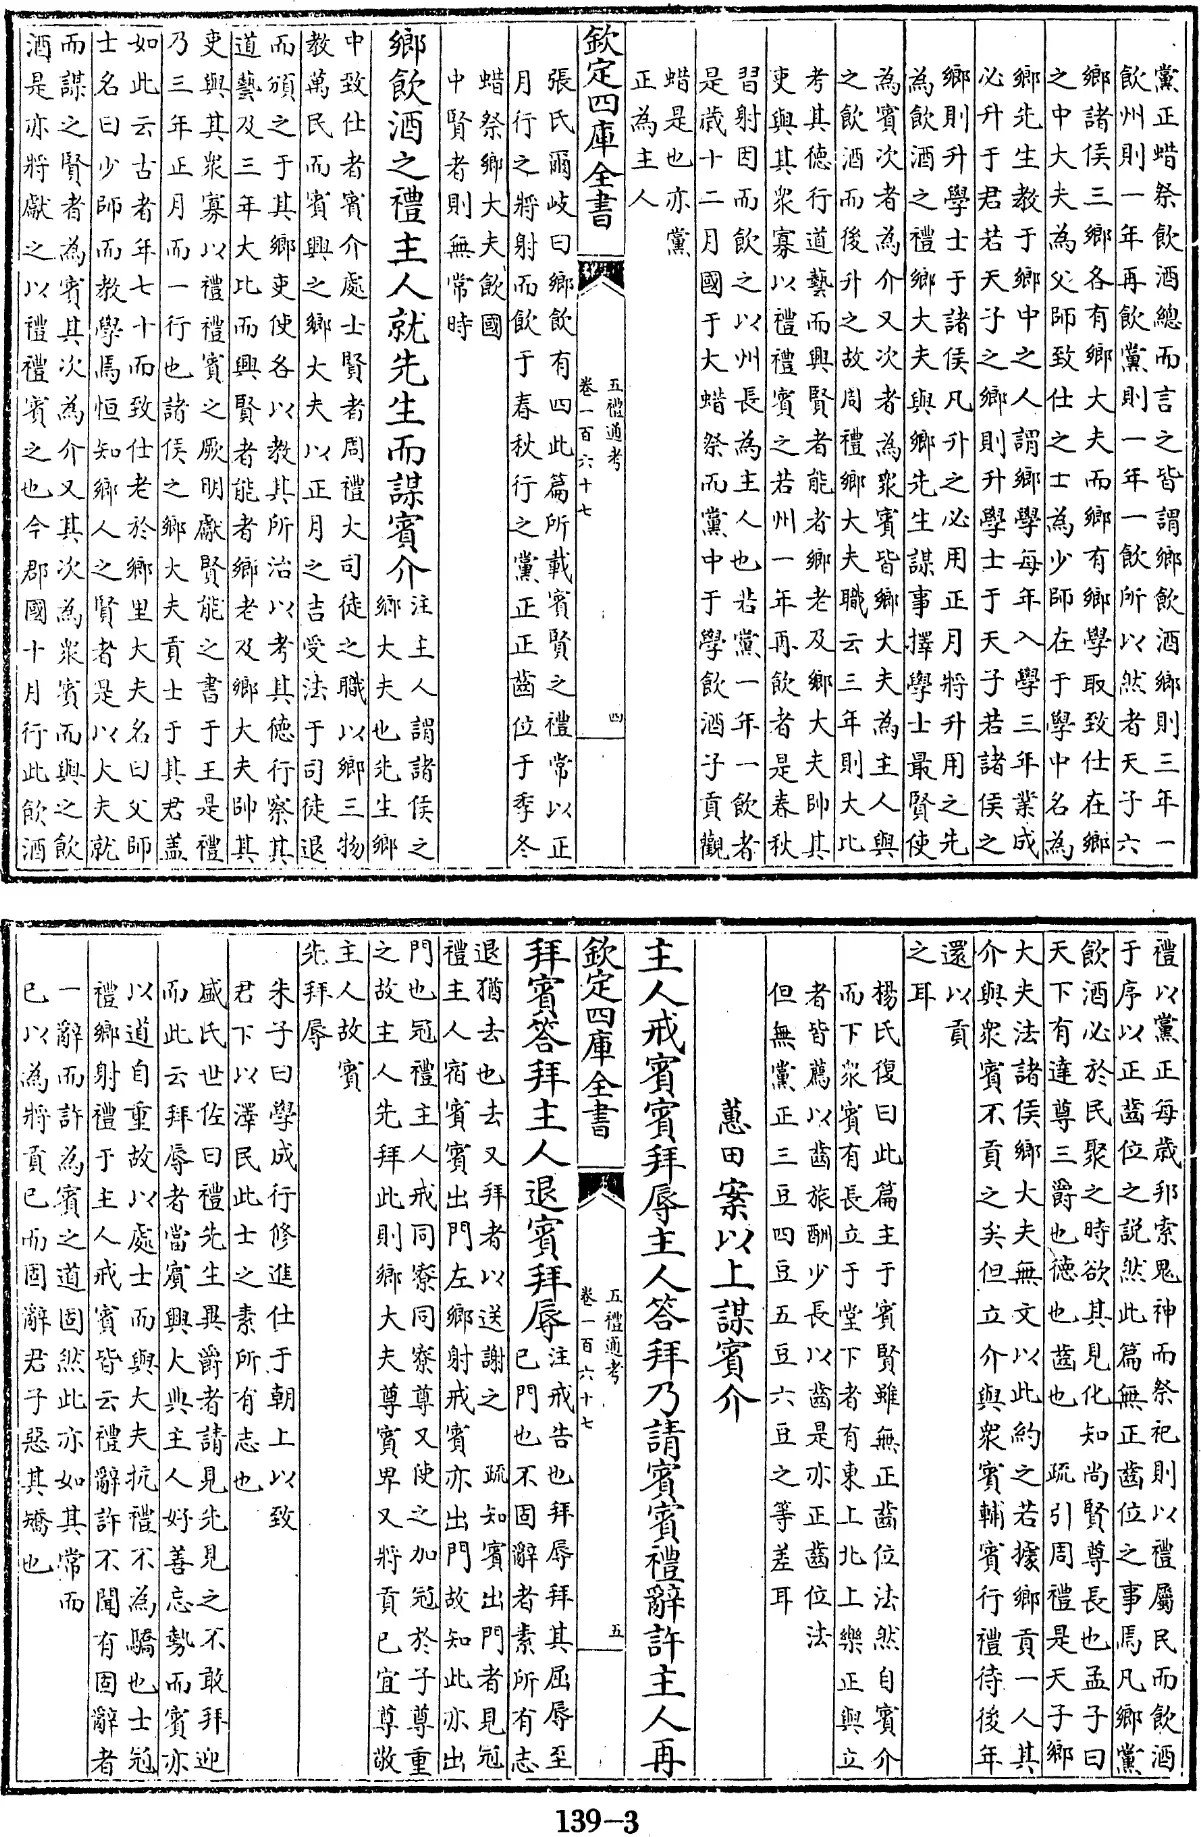 黨正蜡祭飲酒總而言之皆謂鄉飲酒鄉則三年一
飲州則一年再飲黨則一年一飲所以然者天子六
鄉諸侯三鄉各有鄉大夫而鄉有鄉學取致仕在鄉
之中大夫為父師致仕之士為少師在于學中名為
鄉先生教于鄉中之人謂鄉學每年入學三年業成
必升于君若天子之鄉則升學士于天子若諸侯之
鄉則升學士于諸侯凡升之必用正月將升用之先
為飲酒之禮鄉大夫與鄉先生謀事擇學士最賢使
為賓次者為介又次者為衆賓皆鄉大夫為主人與
之飲酒而後升之故周禮鄉大夫職云三年則大比
考其德行道藝而興賢者能者鄉老及鄉大夫帥其
吏與其衆寡以禮禮賓之若州一年再飲者是春秋
習射因而飲之以州長為主人也若黨一年一飲者
是歲十二月國于大蜡祭而黨中于學飲酒子貢觀
蜡是也亦黨
正為主人
欽定四庫全書
五禮通考
卷一百六十七
四
張氏爾岐曰鄉飲有四此篇所載賓賢之禮常以正
月行之將射而飲于春秋行之黨正正齒位于季冬
蜡祭鄉大夫飲國
中賢者則無常時
鄉飲酒之禮主人就先生而謀賓介
注主人謂諸侯之
鄉大夫也先生鄉
中致仕者賓介處士賢者周禮大司徒之職以鄉三物
教萬民而賓興之鄉大夫以正月之吉受法于司徒退
而頒之于其鄉吏使各以教其所治以考其德行察其
道藝及三年大比而興賢者能者鄉老及鄉大夫帥其
吏與其衆寡以禮禮賓之厥明獻賢能之書于王是禮
乃三年正月而一行也諸侯之鄉大夫貢士于其君蓋
如此云古者年七十而致仕老於鄉里大夫名曰父師
士名曰少師而教學焉恒知鄉人之賢者是以大夫就
而謀之賢者為賓其次為介又其次為衆賓而與之飲
酒是亦將獻之以禮禮賓之也今郡國十月行此飲酒
禮以黨正每歲邦索鬼神而祭祀則以禮屬民而飲酒
于序以正齒位之説然此篇無正齒位之事焉凡鄉黨
飲酒必於民聚之時欲其見化知尚賢尊長也孟子曰
天下有達尊三爵也德也齒也 疏引周禮是天子鄉
大夫法諸侯鄉大夫無文以此約之若據鄉貢一人其
介與衆賓不貢之矣但立介與衆賓輔賓行禮待後年
還以貢
之耳
楊氏復曰此篇主于賓賢雖無正齒位法然自賓介
而下衆賓有長立于堂下者有東上北上樂正與立
者皆薦以齒旅酬少長以齒是亦正齒位法
但無黨正三豆四豆五豆六豆之等差耳
蕙田案以上謀賓介
主人戒賓賓拜辱主人答拜乃請賓賓禮辭許主人再
欽定四庫全書
五禮通考
卷一百六十七
五
拜賓答拜主人退賓拜辱
注戒告也拜辱拜其屈辱至
已門也不固辭者素所有志
退猶去也去又拜者以送謝之 疏知賓出門者見冠
禮主人宿賓賓出門左鄉射戒賓亦出門故知此亦出
門也冠禮主人戒同寮同寮尊又使之加冠於子尊重
之故主人先拜此則鄉大夫尊賓卑又將貢已宜尊敬
主人故賓
先拜辱
朱子曰學成行修進仕于朝上以致
君下以澤民此士之素所有志也
盛氏世佐曰禮先生異爵者請見先見之不敢拜迎
而此云拜辱者當賓興大典主人好善忘勢而賓亦
以道自重故以處士而與大夫抗禮不為驕也士冠
禮鄉射禮于主人戒賓皆云禮辭許不聞有固辭者
一辭而許為賓之道固然此亦如其常而
已以為將貢已而固辭君子惡其矯也
139-3